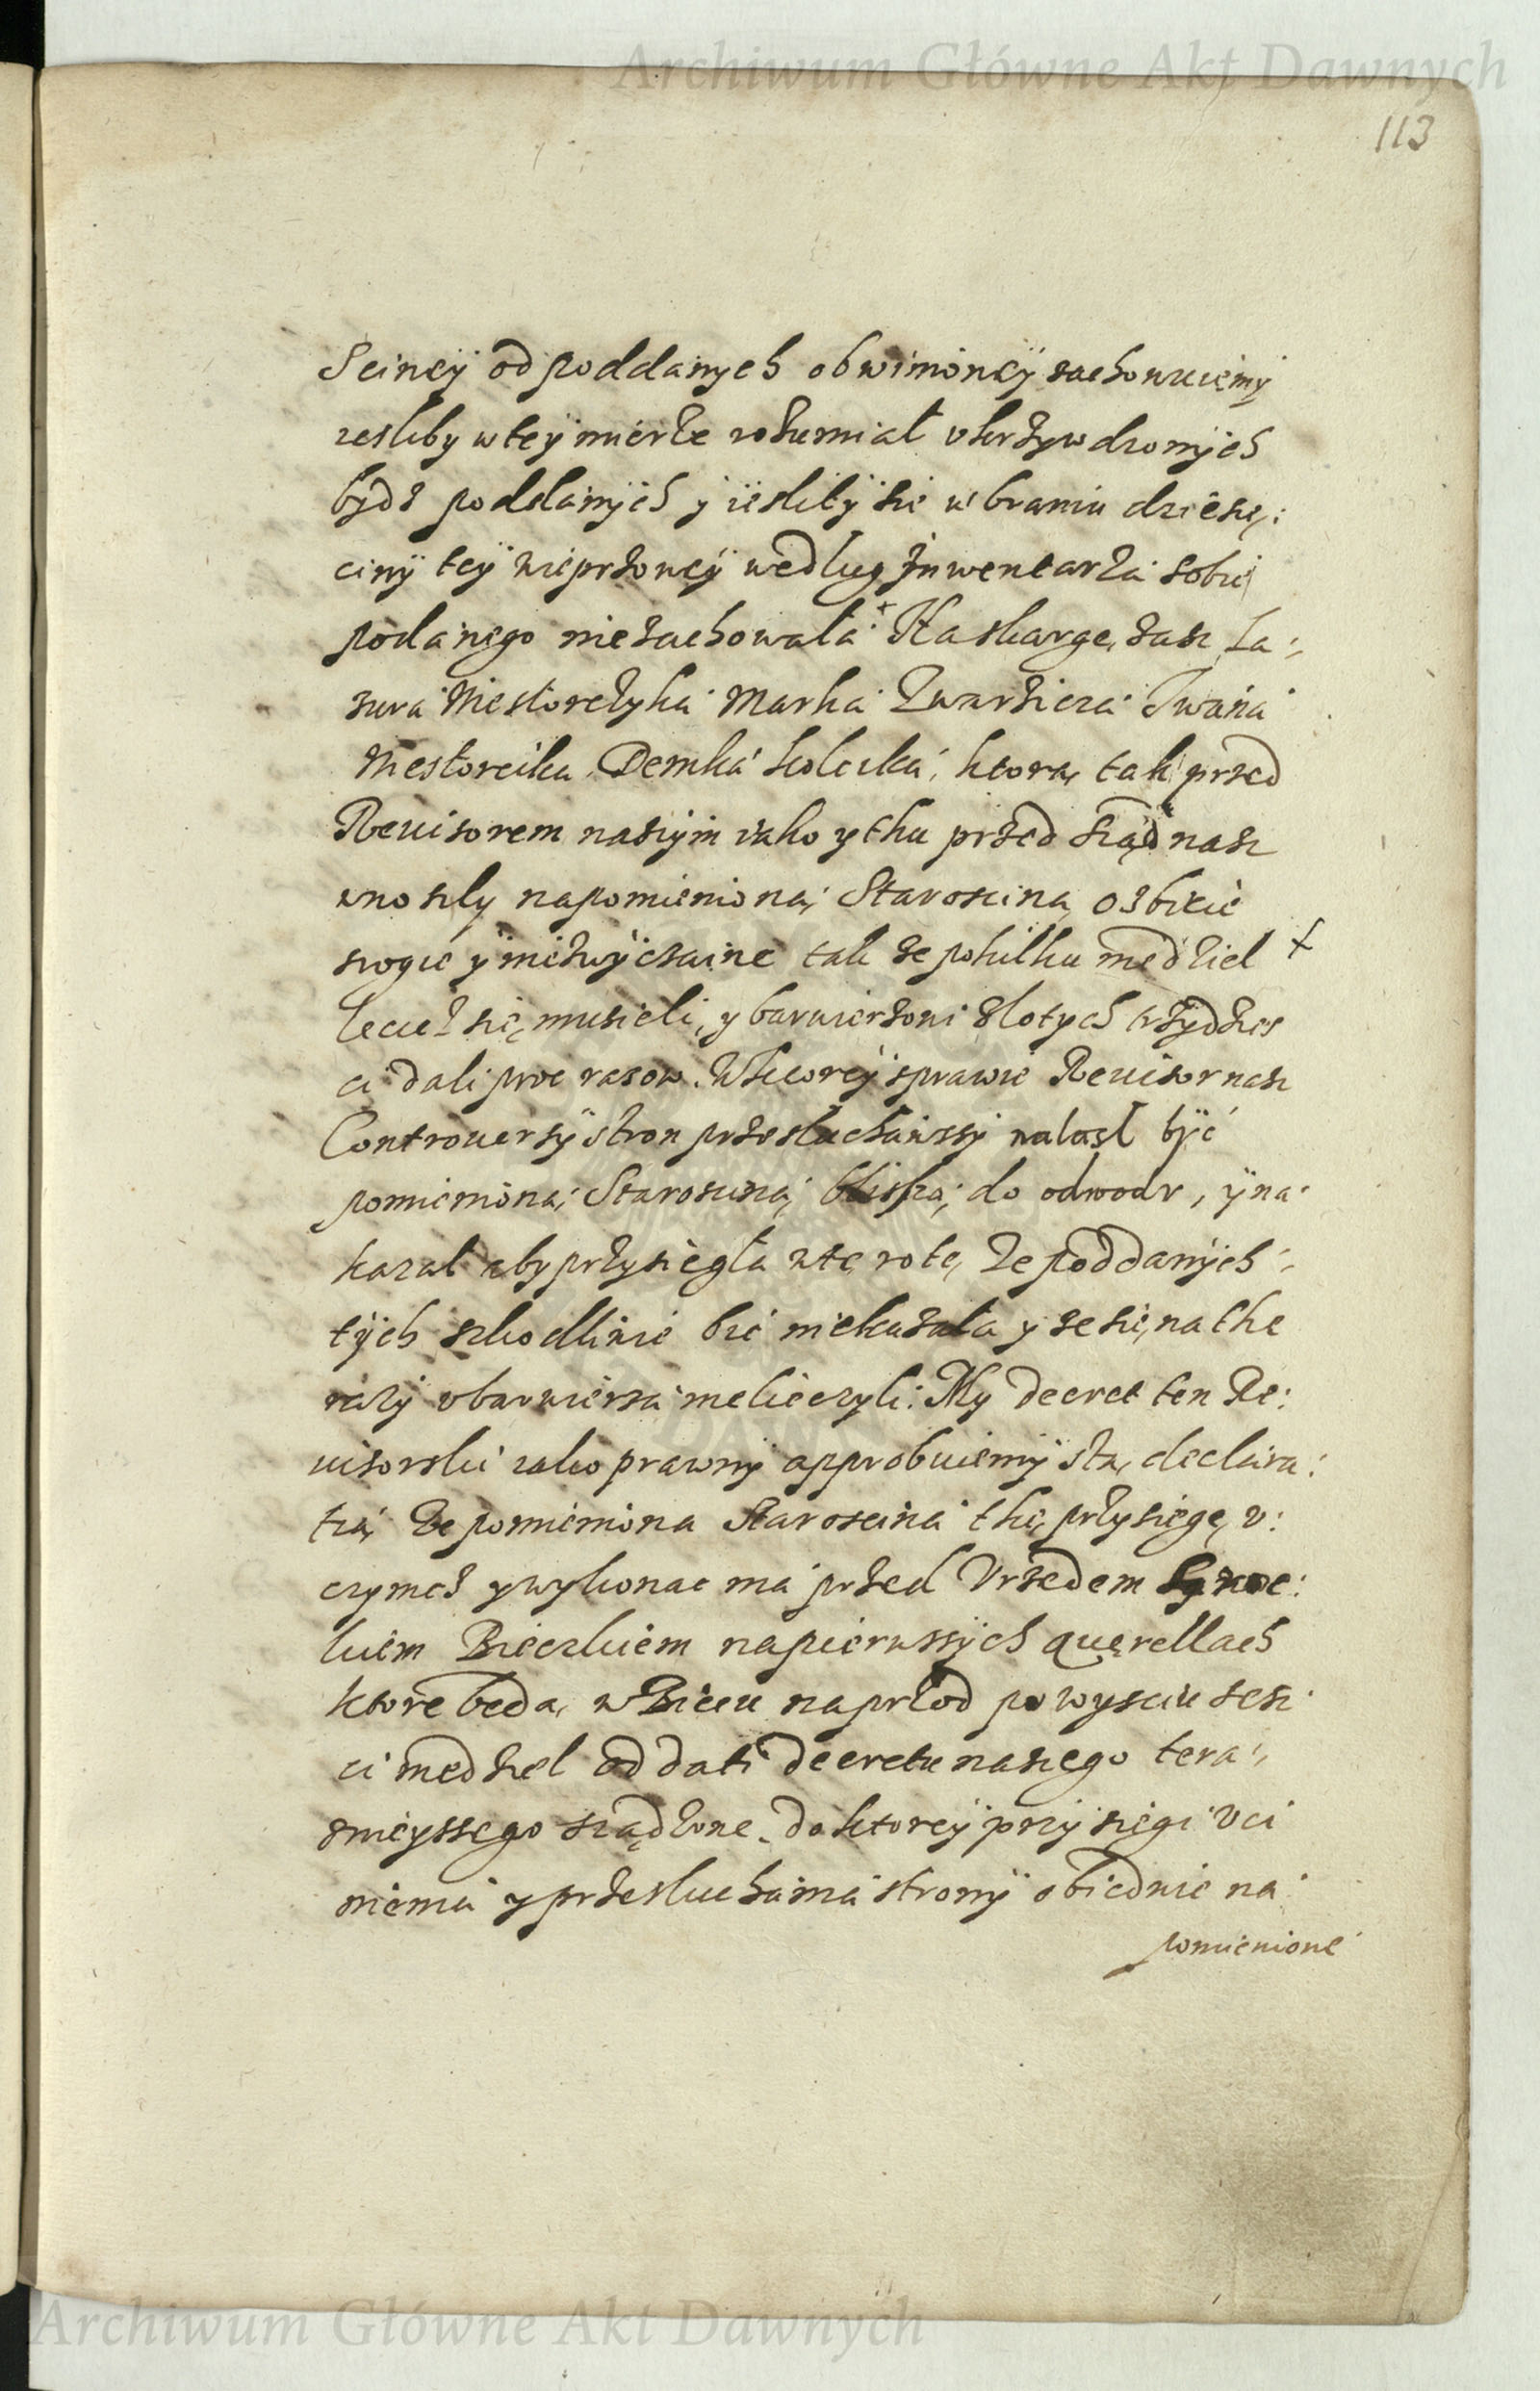 Archiwum Główne Akt Dawnych
113
Scincÿ od poddanych obwinioncÿ zachowuiemÿ
iesliby w teÿ mierze rozumiał vkrzywdzonÿch
bydz poddanÿch ÿ iesliby sie w braniu dziesię:
cinÿ teÿ wieprzoweÿ wedlug Inwentarza sobie
podanego nie zachowała + Na skargę zasz Ła:
zura Niestorczyka Marka Zwarzicza Iwana
Niestorcika Demka kolecka, ktorą tak przed
Reuisorem naszÿm iako ÿ thu przed sąd nasz
wnosily na pomienioną Staroscinę o zbicie
srogie ÿ niezwÿczaine tak ze po kilku niedziel +
leciec się musieli, y barwierzowi zlotych trzydzies
ci dali proc razow. W ktoreÿ sprawie Reuisor nasz
Controuersÿ stron przesluchawszÿ nalazł bÿć
pomienioną Staroscinę bliszą do odwodu, ÿ na
kazal aby przysięgła na tę rotę, ze poddanÿch
tÿch szkodliwie bic nie kazała y ze się na the
razÿ v barwierza nie liecyli: My decret ten Re:
uisorski iako prawnÿ approbuiemÿ s tą declara:
tią ze pomieniona Staroscina thę przysięgę v:
czynic y wykonac ma przed Vrzędem Grodz:
kiem Bieczkiem na pierwssÿch querellach
ktore będą w Bieczu naprzod po wysciu szesz
ci niedziel od dati decretu naszego tera:
znieyssego sądzone. do ktoreÿ przysięgi vci
nienia y przesluchania stronÿ obiedwie na
pomienione
Archiwum Główne Akt Dawnych